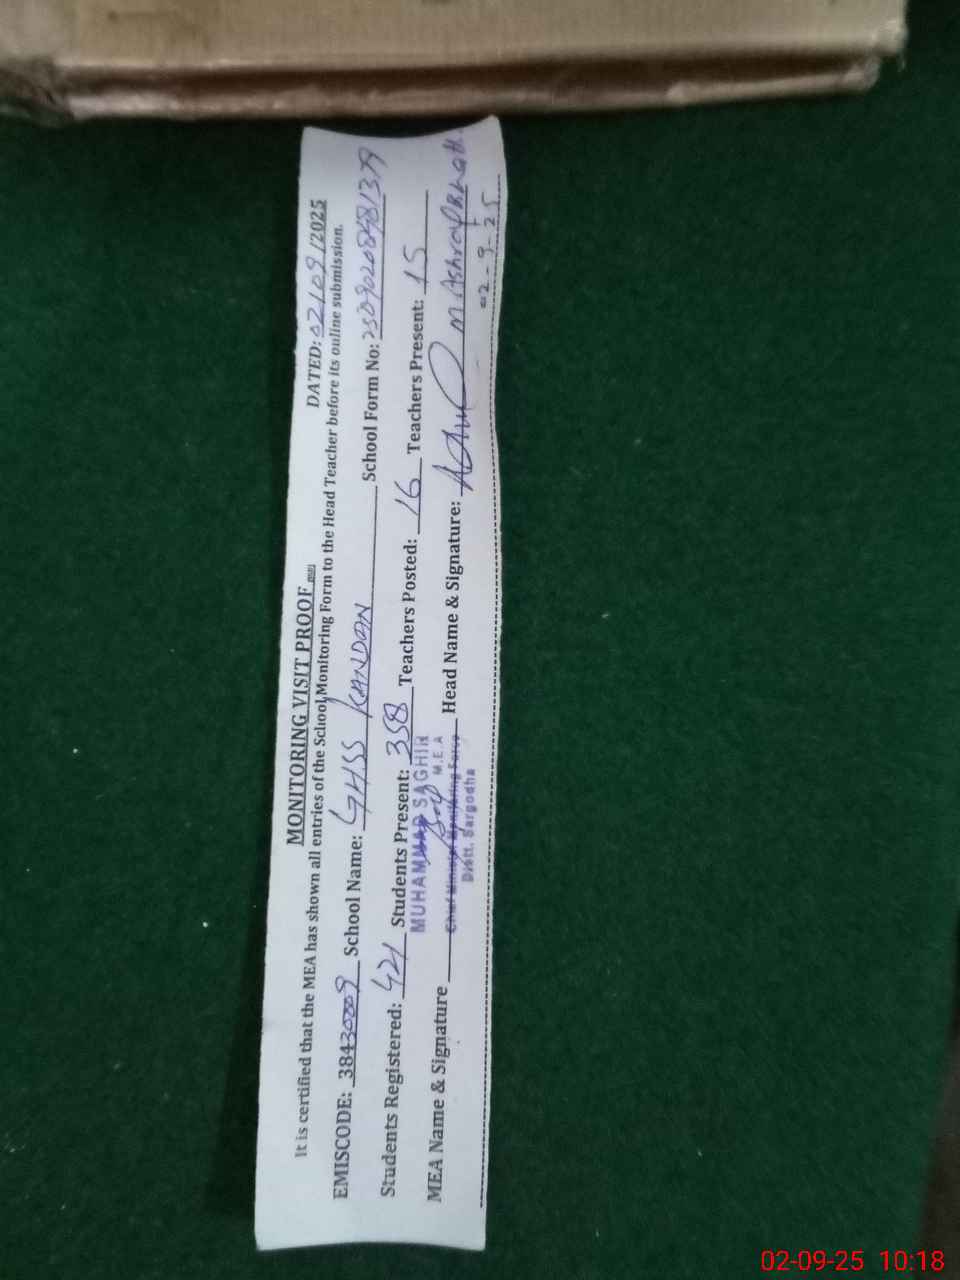 MONITORING VISIT PROOF
DATED: 02/09/2025
It is certified that the MEA has shown all entries of the School Monitoring Form to the Head Teacher before its online submission.
EMISCODE: 38430009 School Name: GHSS KANDAN School Form No:
Students Registered: 421 Students Present: 358 Teachers Posted: 16 Teachers Present: 15
MEA Name & Signature Head Name & Signature: M. Ashraf
MUHAMMAD SAGHIR
M.E.A
Chief Minister Monitoring Force
Distt. Sargodha
02-9-25
02-09-25 10:18